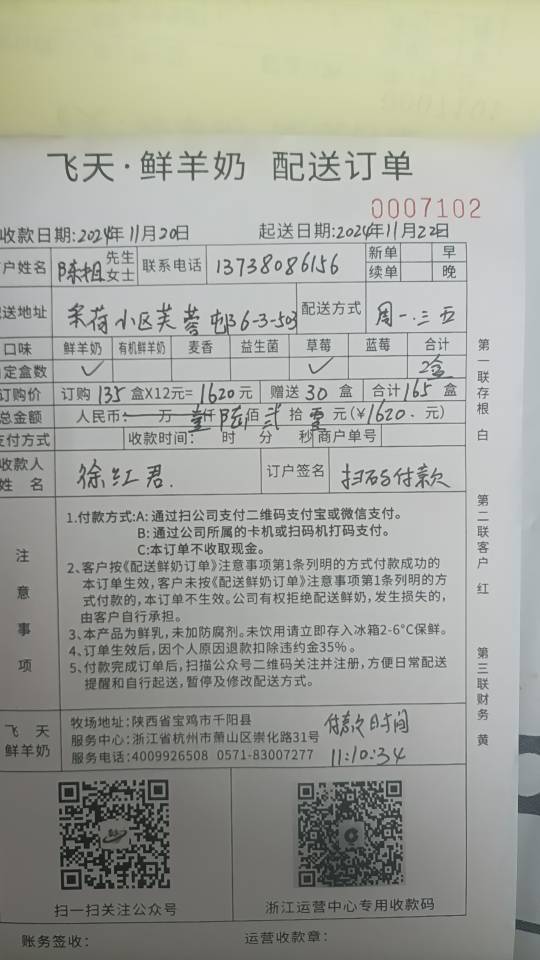 飞天·鲜羊奶 配送订单
0007102
收款日期:2024年11月20日 起送日期:2024年11月22日
户姓名 陈旭 先生 女士 联系电话 13738086156 新单 早
续单 晚
送地址 采荷小区芙蓉邨36-3-503 配送方式 周一.三五
口味 鲜羊奶 有机鲜羊奶 麦香 益生菌 草莓 蓝莓 合计
定盒数 ✓ ✓ 2盒
订购价 订购135盒X12元=1620元 赠送30盒 合计165盒
总金额 人民币: 万壹仟陆佰贰拾零元(¥1620.元)
支付方式 收款时间: 时 分 秒 商户单号
收款人姓名 徐红君. 订户签名 扫码付款
注意事项
1.付款方式:A: 通过扫公司支付二维码支付宝或微信支付。
B: 通过公司所属的卡机或扫码机打码支付。
C:本订单不收取现金。
2、客户按《配送鲜奶订单》注意事项第1条列明的方式付款成功的
本订单生效,客户未按《配送鲜奶订单》注意事项第1条列明的方
式付款的,本订单不生效。公司有权拒绝配送鲜奶,发生损失的,
由客户自行承担。
3、本产品为鲜乳,未加防腐剂。未饮用请立即存入冰箱2-6°C保鲜。
4、订单生效后,因个人原因退款扣除违约金35%。
5、付款完成订单后,扫描公众号二维码关注并注册,方便日常配送
提醒和自行起送,暂停及修改配送方式。
飞天鲜羊奶
牧场地址:陕西省宝鸡市千阳县
服务中心:浙江省杭州市萧山区崇化路31号
服务电话:4009926508 0571-83007277
付款日时间
11:10:34
扫一扫关注公众号 浙江运营中心专用收款码
账务签收: 运营收款章:
第一联存根 白
第二联客户 红
第三联财务 黄